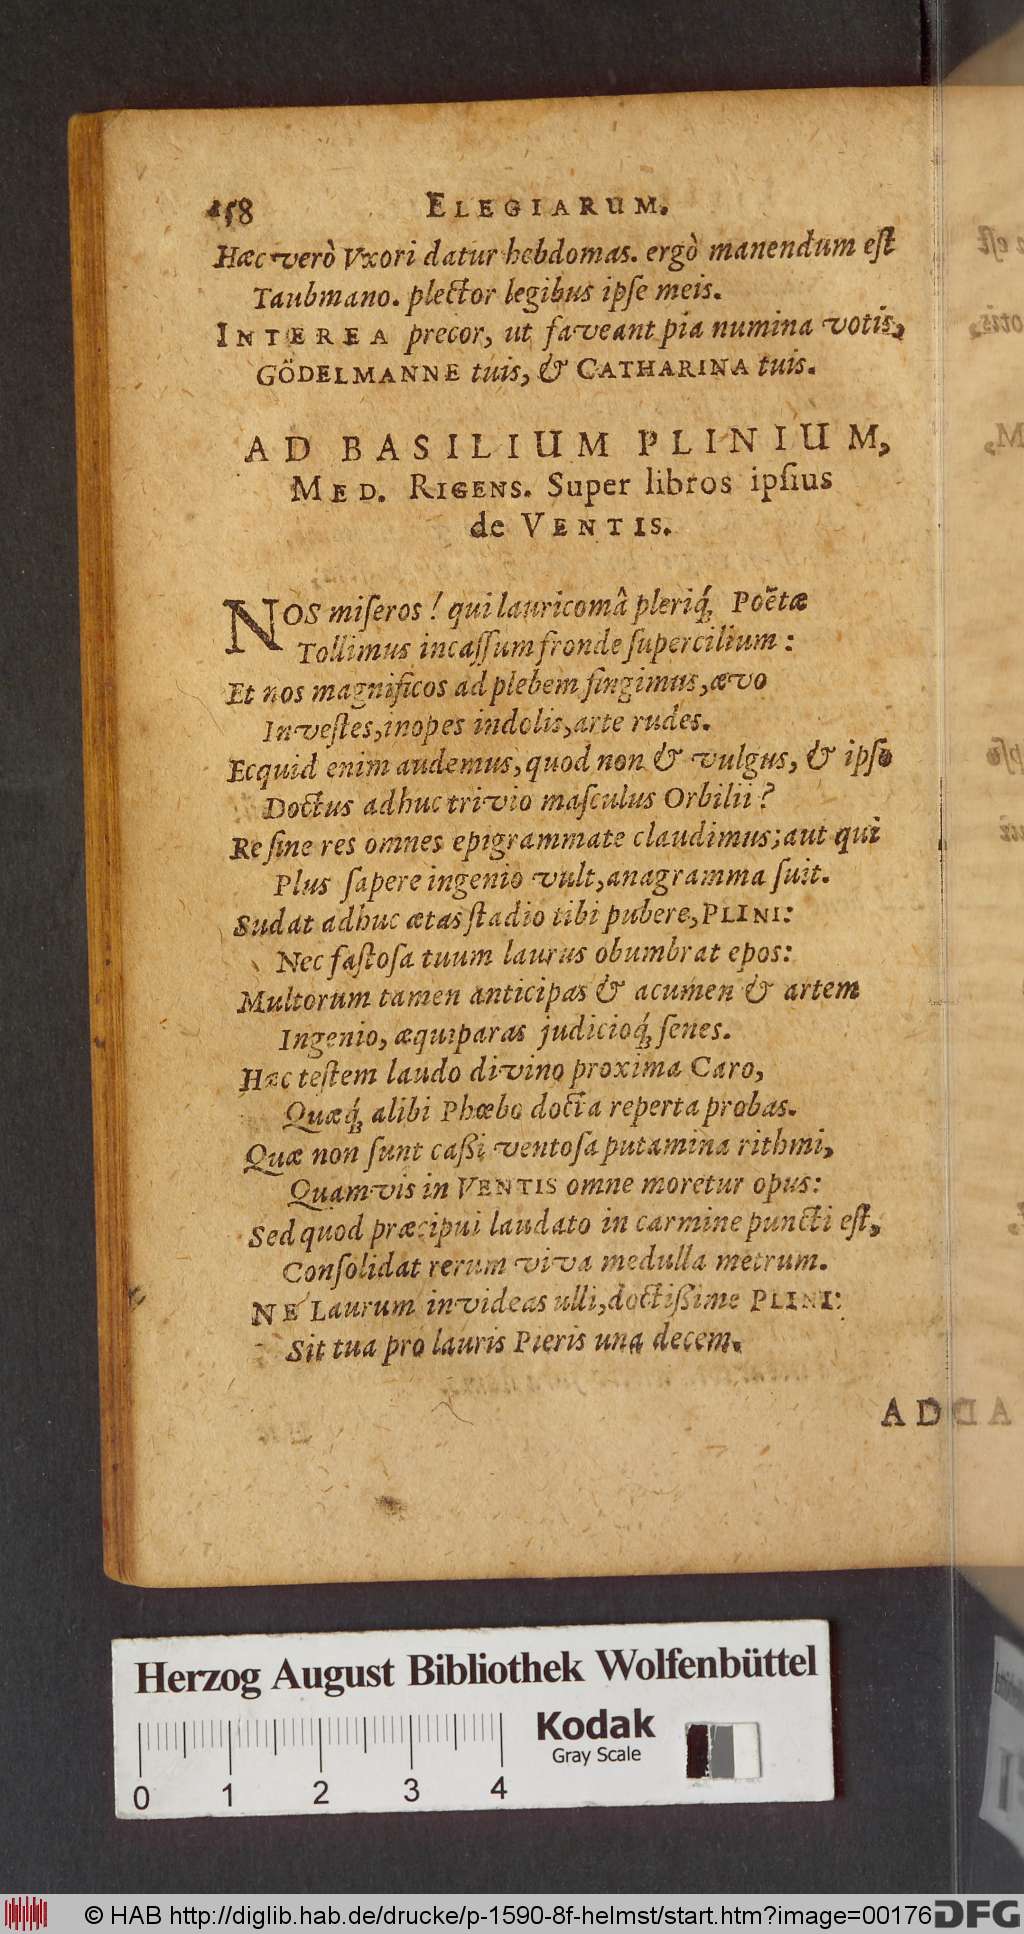 158 ELEGIARUM.
Hæc verò Vxori datur hebdomas. ergò manendum eſt
Taubmano. plector legibus ipſe meis.
INTEREA precor, ut faveant pia numina votis,
GÖDELMANNE tuis, & CATHARINA tuis.
AD BASILIUM PLINIUM,
MED. RIGENS. Super libros ipſius
de VENTIS.
NOS miſeros! qui lauricomâ pleriq́; Poëtæ
Tollimus incaſſum fronde ſupercilium:
Et nos magnificos ad plebem fingimus, ævo
Inveſtes, inopes indolis, arte rudes.
Ecquid enim audemus, quod non & vulgus, & ipſo
Doctus adhuc trivio maſculus Orbilii?
Re ſine res omnes epigrammate claudimus; aut qui
Plus ſapere ingenio vult, anagramma ſuit.
Sudat adhuc ætas ſtadio tibi pubere, PLINI:
Nec faſtoſa tuum laurus obumbrat epos:
Multorum tamen anticipas & acumen & artem
Ingenio, æquiparas judicioq́; ſenes.
Hæc teſtem laudo divino proxima Caro,
Quæq́; alibi Phœbo docta reperta probas.
Quæ non ſunt caßi ventoſa putamina rithmi,
Quamvis in VENTIS omne moretur opus:
Sed quod præcipui laudato in carmine puncti eſt,
Conſolidat rerum viva medulla metrum.
NE Laurum invideas ulli, doctißime PLINI:
Sit tua pro lauris Pieris una decem.
AD
Herzog August Bibliothek Wolfenbüttel
Kodak
Gray Scale
0 1 2 3 4
© HAB http://diglib.hab.de/drucke/p-1590-8f-helmst/start.htm?image=00176
DFG